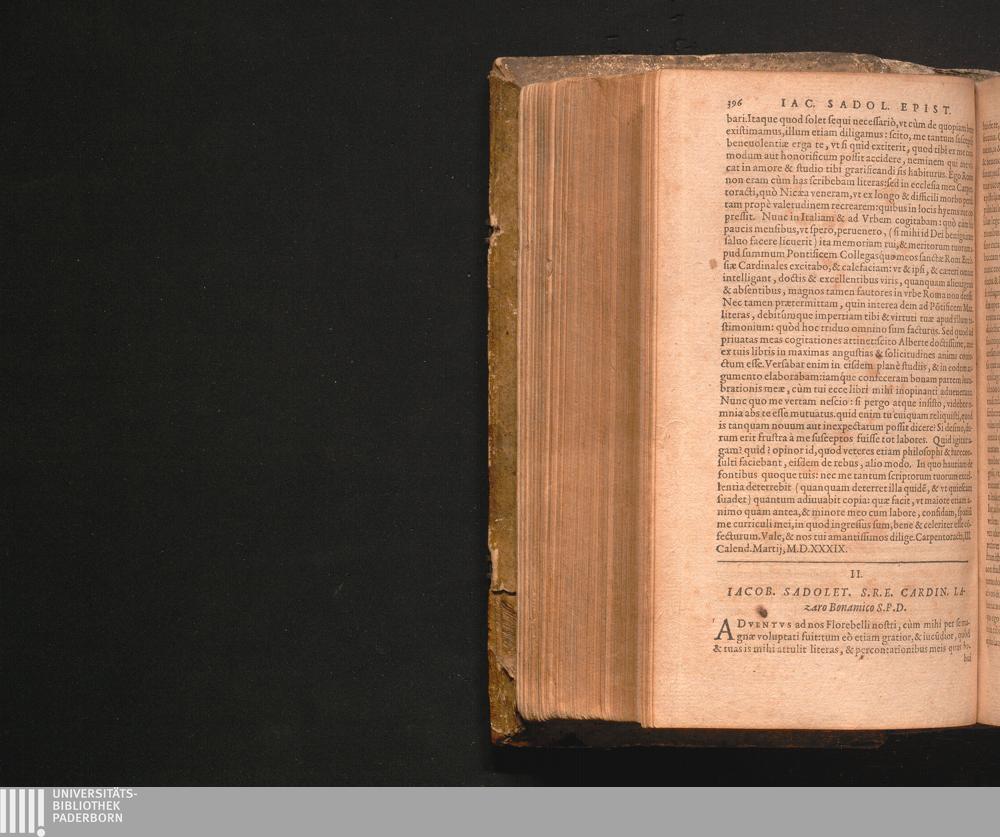 396 IAC. SADOL. EPIST.
bari.Itaque quod solet sequi necessariò,vt cùm de quopiam
existimamus,illum etiam diligamus: scito, me tantum
beneuolentiæ erga te, vt si quid extiterit, quod tibi ex me
modum aut honorificum possit accidere, neminem qui
cat in amore & studio tibi gratificandi sis habiturus. Ego
non eram cùm has scribebam literas:sed in ecclesia mea
toracti,quò Nicæa veneram,vt ex longo & difficili morbo
tam propè valetudinem recrearem:quibus in locis hyems
pressit. Nunc in Italiam & ad Vrbem cogitabam: quò cùm
paucis mensibus,vt spero,peruenero, (si mihi id Dei
saluo facere licuerit) ita memoriam tui,& meritorum tuorum
pud summum Pontificem Collegasque meos sanctæ Rom.
siæ Cardinales excitabo,& calefaciam: vt & ipsi, & cæteri
intelligant, doctis & excellentibus viris, quanquam
& absentibus, magnos tamen fautores in vrbe Roma non
Nec tamen prætermittam, quin interea dem ad Põtificem
literas, debitumque impertiam tibi & virtuti tuæ apud illum
stimonium: quòd hoc triduo omnino sum facturus. Sed quod
priuatas meas cogitationes attinet:scito Alberte doctissime,
ex tuis libris in maximas angustias & solicitudines animi
ctum esse.Versabar enim in eisdem planè studiis, & in eodem
gumento elaborabam:iamque confeceram bonam partem
brationis meæ, cùm tui ecce libri mihi inopinanti
Nunc quo me vertam nescio: si pergo atque insisto, videbor
mnia abs te esse mutuatus.quid enim tu cuiquam reliquisti,quod
is tanquam nouum aut inexpectatum possit dicere? Si desino,
rum erit frustra à me susceptos fuisse tot labores. Quid igitur
gam? quid? opinor id, quod veteres etiam philosophi &
sulti faciebant, eisdem de rebus, alio modo. In quo
fontibus quoque tuis: nec me tantum scriptorum tuorum
lentia deterrebit (quanquam deterret illa quidẽ, & vt
suadet) quantum adiuuabit copia: quæ facit, vt maiore etiam
nimo quàm antea,& minore meo cum labore, confidam,
me curriculi mei,in quod ingressus sum,bene & celeriter esse
fecturum.Vale,& nos tui amantissimos dilige.Carpentoracti,III.
Calend.Martij, M.D.XXXIX.
II.
IACOB. SADOLET. S.R.E. CARDIN. LA-
zaro Bonamico S.P.D.
ADVENTVS ad nos Florebelli nostri, cùm mihi per se
gnæ voluptati fuit:tum eò etiam gratior,& iucũdior, quòd
& tuas is mihi attulit literas, & percontationibus meis quas
bui
UNIVERSITÄTS-
BIBLIOTHEK
PADERBORN